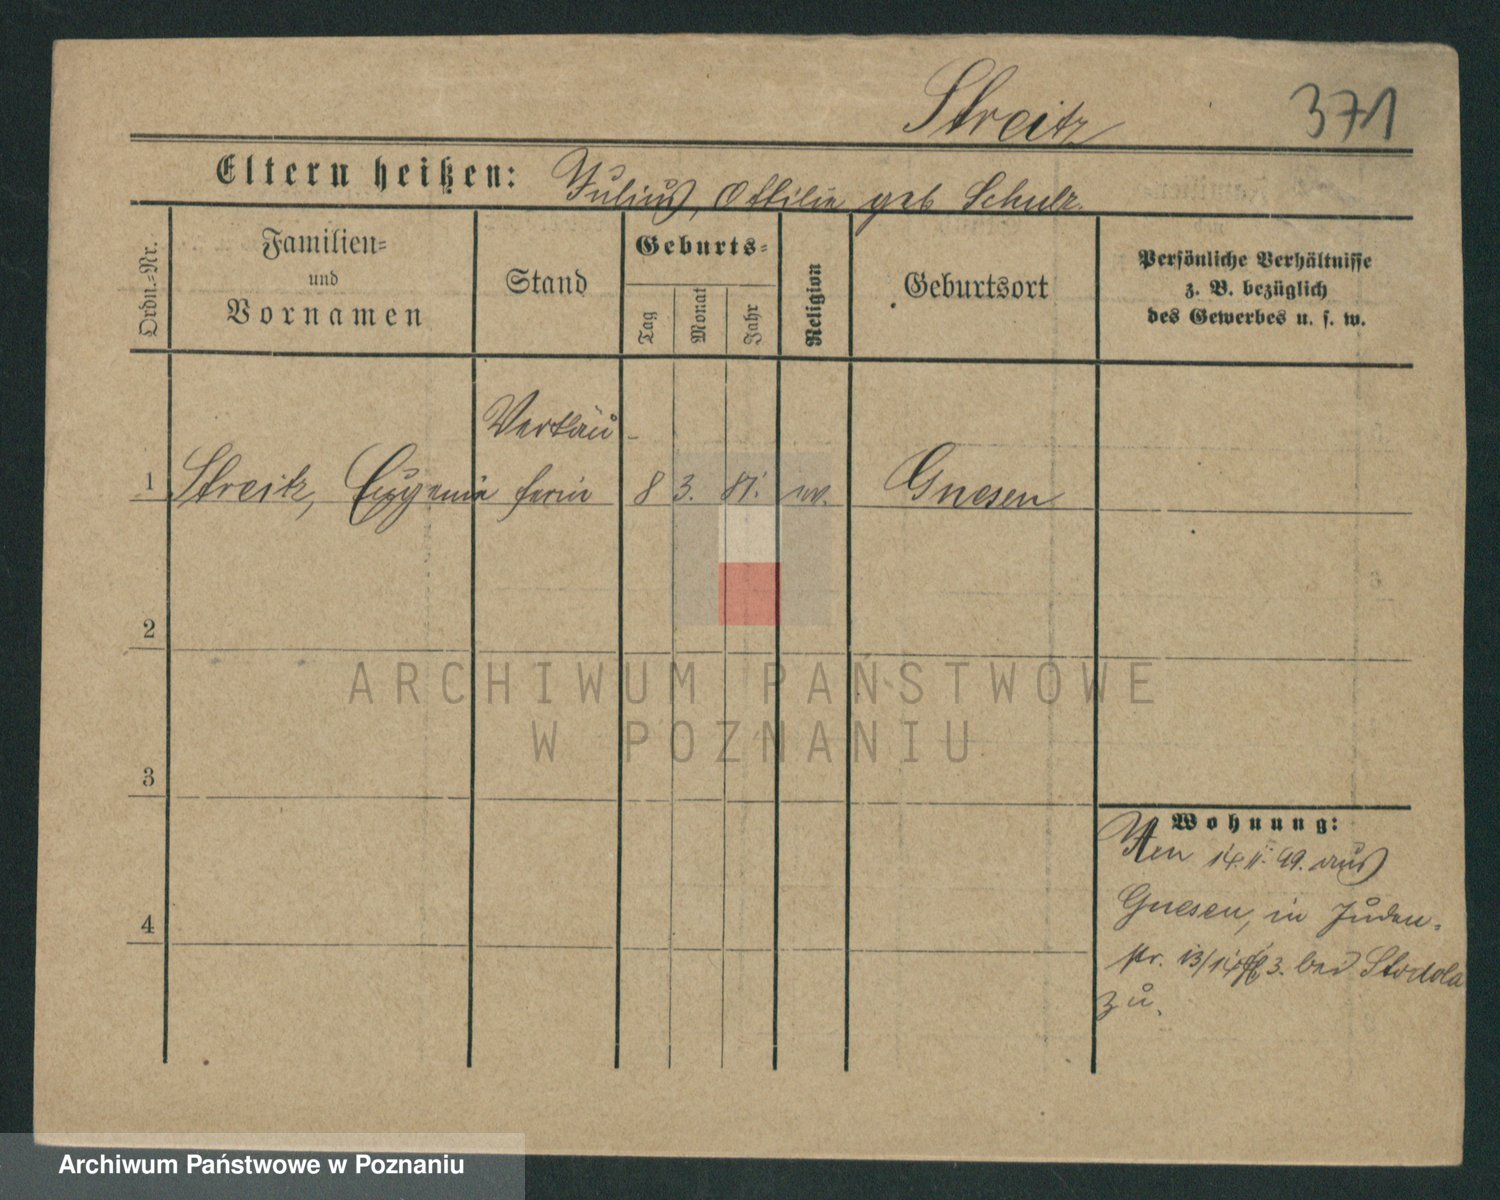 Streitz 371
Eltern heißen: Julius, Ottilie geb Schulz.
Ordn.-Nr.
Familien-
und
Vornamen
Stand
Geburts-
Tag
Monat
Jahr
Religion
Geburtsort
Persönliche Verhältnisse
z. B. bezüglich
des Gewerbes u. s. w.
Verkäu-
1 Streitz, Eugenie ferin 8 3. 81. ev. Gnesen
2
ARCHIWUM PAŃSTWOWE
W POZNANIU
3
Wohnung:
14.11.99. aus
4
Gnesen, in Juden-
str. 13/14 3. bei Stodola
zu.
Archiwum Państwowe w Poznaniu